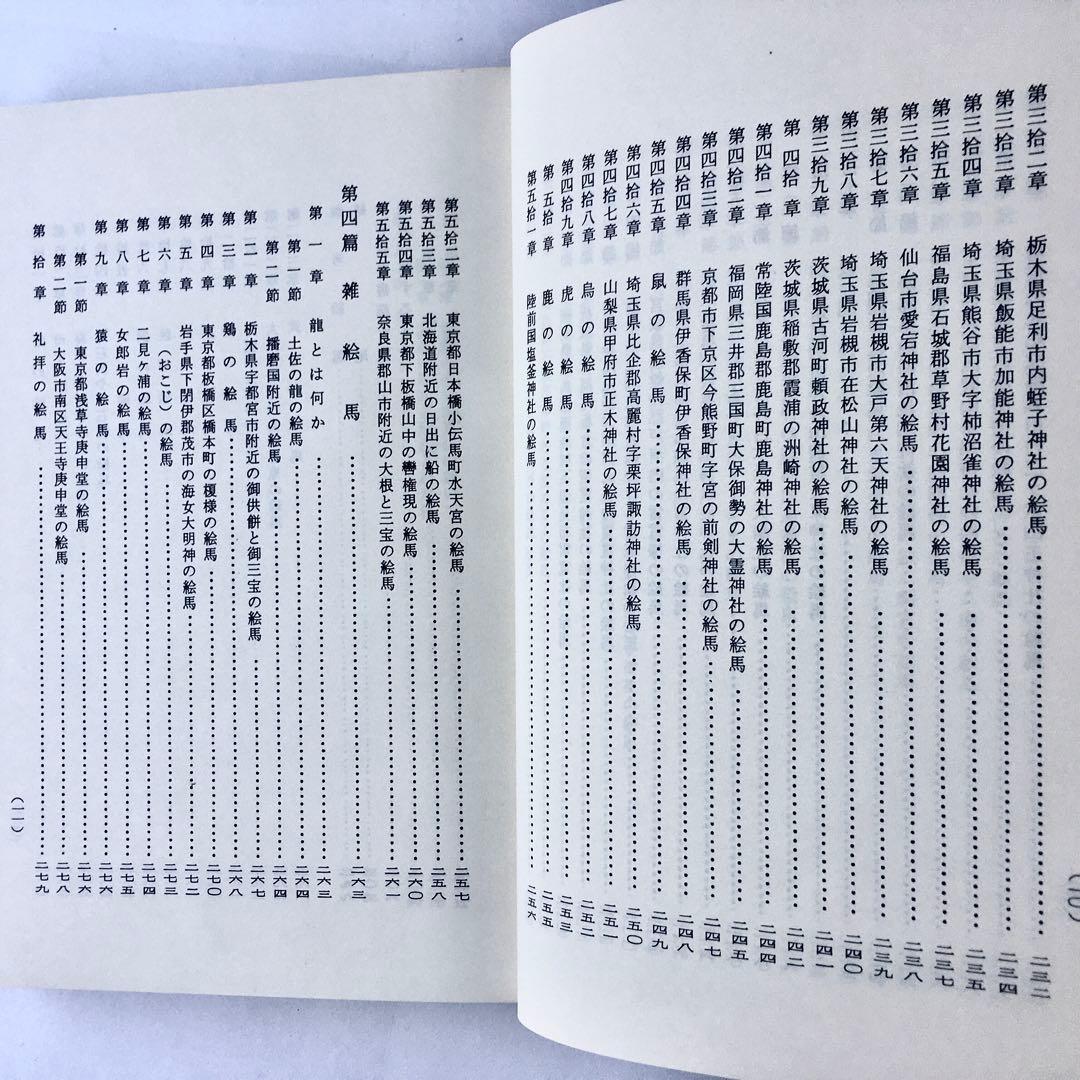 第三拾二章 栃木県足利市内蛭子神社の絵馬 二三二
第三拾三章 埼玉県飯能市加能神社の絵馬 二三四
第三拾四章 埼玉県熊谷市大字柿沼雀神社の絵馬 二三五
第三拾五章 福島県石城郡草野村花園神社の絵馬 二三七
第三拾六章 仙台市愛宕神社の絵馬 二三八
第三拾七章 埼玉県岩槻市大戸第六天神社の絵馬 二三九
第三拾八章 埼玉県岩槻市在松山神社の絵馬 二四〇
第三拾九章 茨城県古河町頼政神社の絵馬 二四一
第四拾章 茨城県稲敷郡霞浦の洲崎神社の絵馬 二四二
第四拾一章 常陸国鹿島郡鹿島町鹿島神社の絵馬 二四四
第四拾二章 福岡県三井郡三国町大保御勢の大霊神社の絵馬 二四五
第四拾三章 京都市下京区今熊野町字宮の前剣神社の絵馬 二四七
第四拾四章 群馬県伊香保町伊香保神社の絵馬 二四八
第四拾五章 鼠の絵馬 二四九
第四拾六章 埼玉県比企郡高麗村字栗坪諏訪神社の絵馬 二五〇
第四拾七章 山梨県甲府市正木神社の絵馬 二五一
第四拾八章 烏の絵馬 二五二
第四拾九章 虎の絵馬 二五三
第五拾章 鹿の絵馬 二五五
第五拾一章 陸前国塩釜神社の絵馬 二五六
(一〇)
第五拾二章 東京都日本橋小伝馬町水天宮の絵馬 二五七
第五拾三章 北海道附近の日出に船の絵馬 二五八
第五拾四章 東京都下板橋山中の轡権現の絵馬 二六〇
第五拾五章 奈良県郡山市附近の大根と三宝の絵馬 二六一
第四篇 雑絵馬 二六三
第一章 龍とは何か 二六三
第一節 土佐の龍の絵馬 二六四
第二節 播磨国附近の絵馬 二六四
第二章 栃木県宇都宮市附近の御供餅と御三宝の絵馬 二六七
第三章 鶏の絵馬 二六八
第四章 東京都板橋区橋本町の榎様の絵馬 二七〇
第五章 岩手県下閉伊郡茂市の海女大明神の絵馬 二七二
第六章 (おこじ)の絵馬 二七三
第七章 二見ヶ浦の絵馬 二七四
第八章 女郎岩の絵馬 二七五
第九章 猿の絵馬 二七六
第一節 東京都浅草寺庚申堂の絵馬 二七六
第二節 大阪市南区天王寺庚申堂の絵馬 二七八
第拾章 礼拝の絵馬 二七九
(一一)